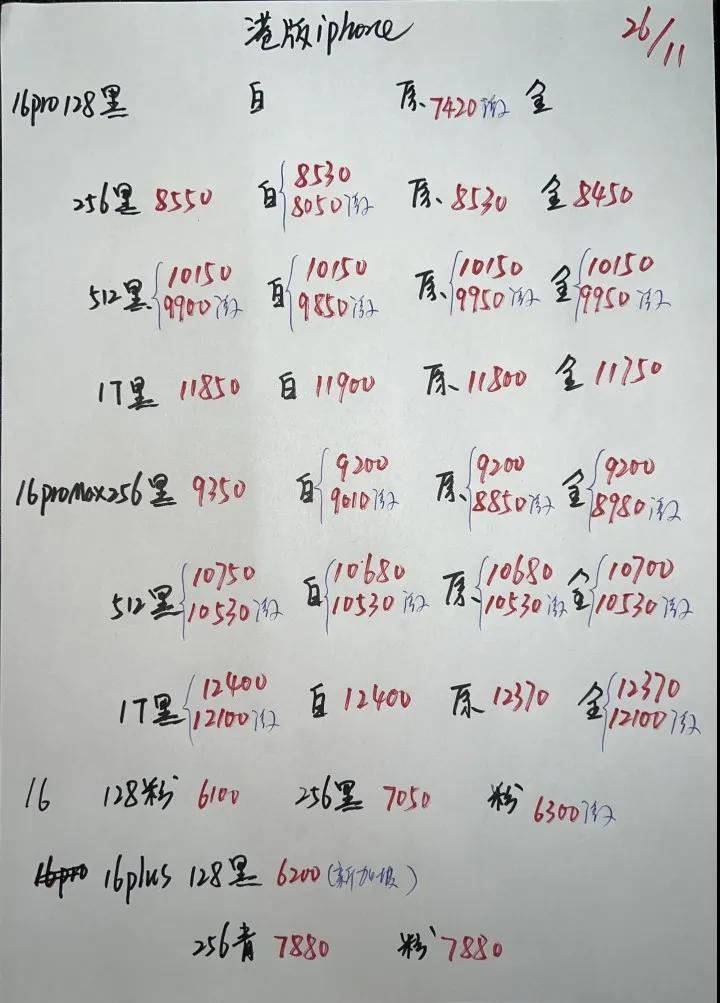 港版iphone 26/11
16pro 128黑 白 原 7420激 金
256黑 8550 白 8530 8050激 原 8530 金 8450
512黑 10150 9900激 白 10150 9850激 原 10150 9950激 金 10150 9950激
1T黑 11850 白 11900 原 11800 金 11750
16proMax256黑 9350 白 9200 9010激 原 9200 8850激 金 9200 8980激
512黑 10750 10530激 白 10680 10530激 原 10680 10530激 金 10700 10530激
1T黑 12400 12100激 白 12400 原 12370 金 12370 12100激
16 128粉 6100 256黑 7050 粉 6300激
16plus 128黑 6200(新加坡)
256青 7880 粉 7880